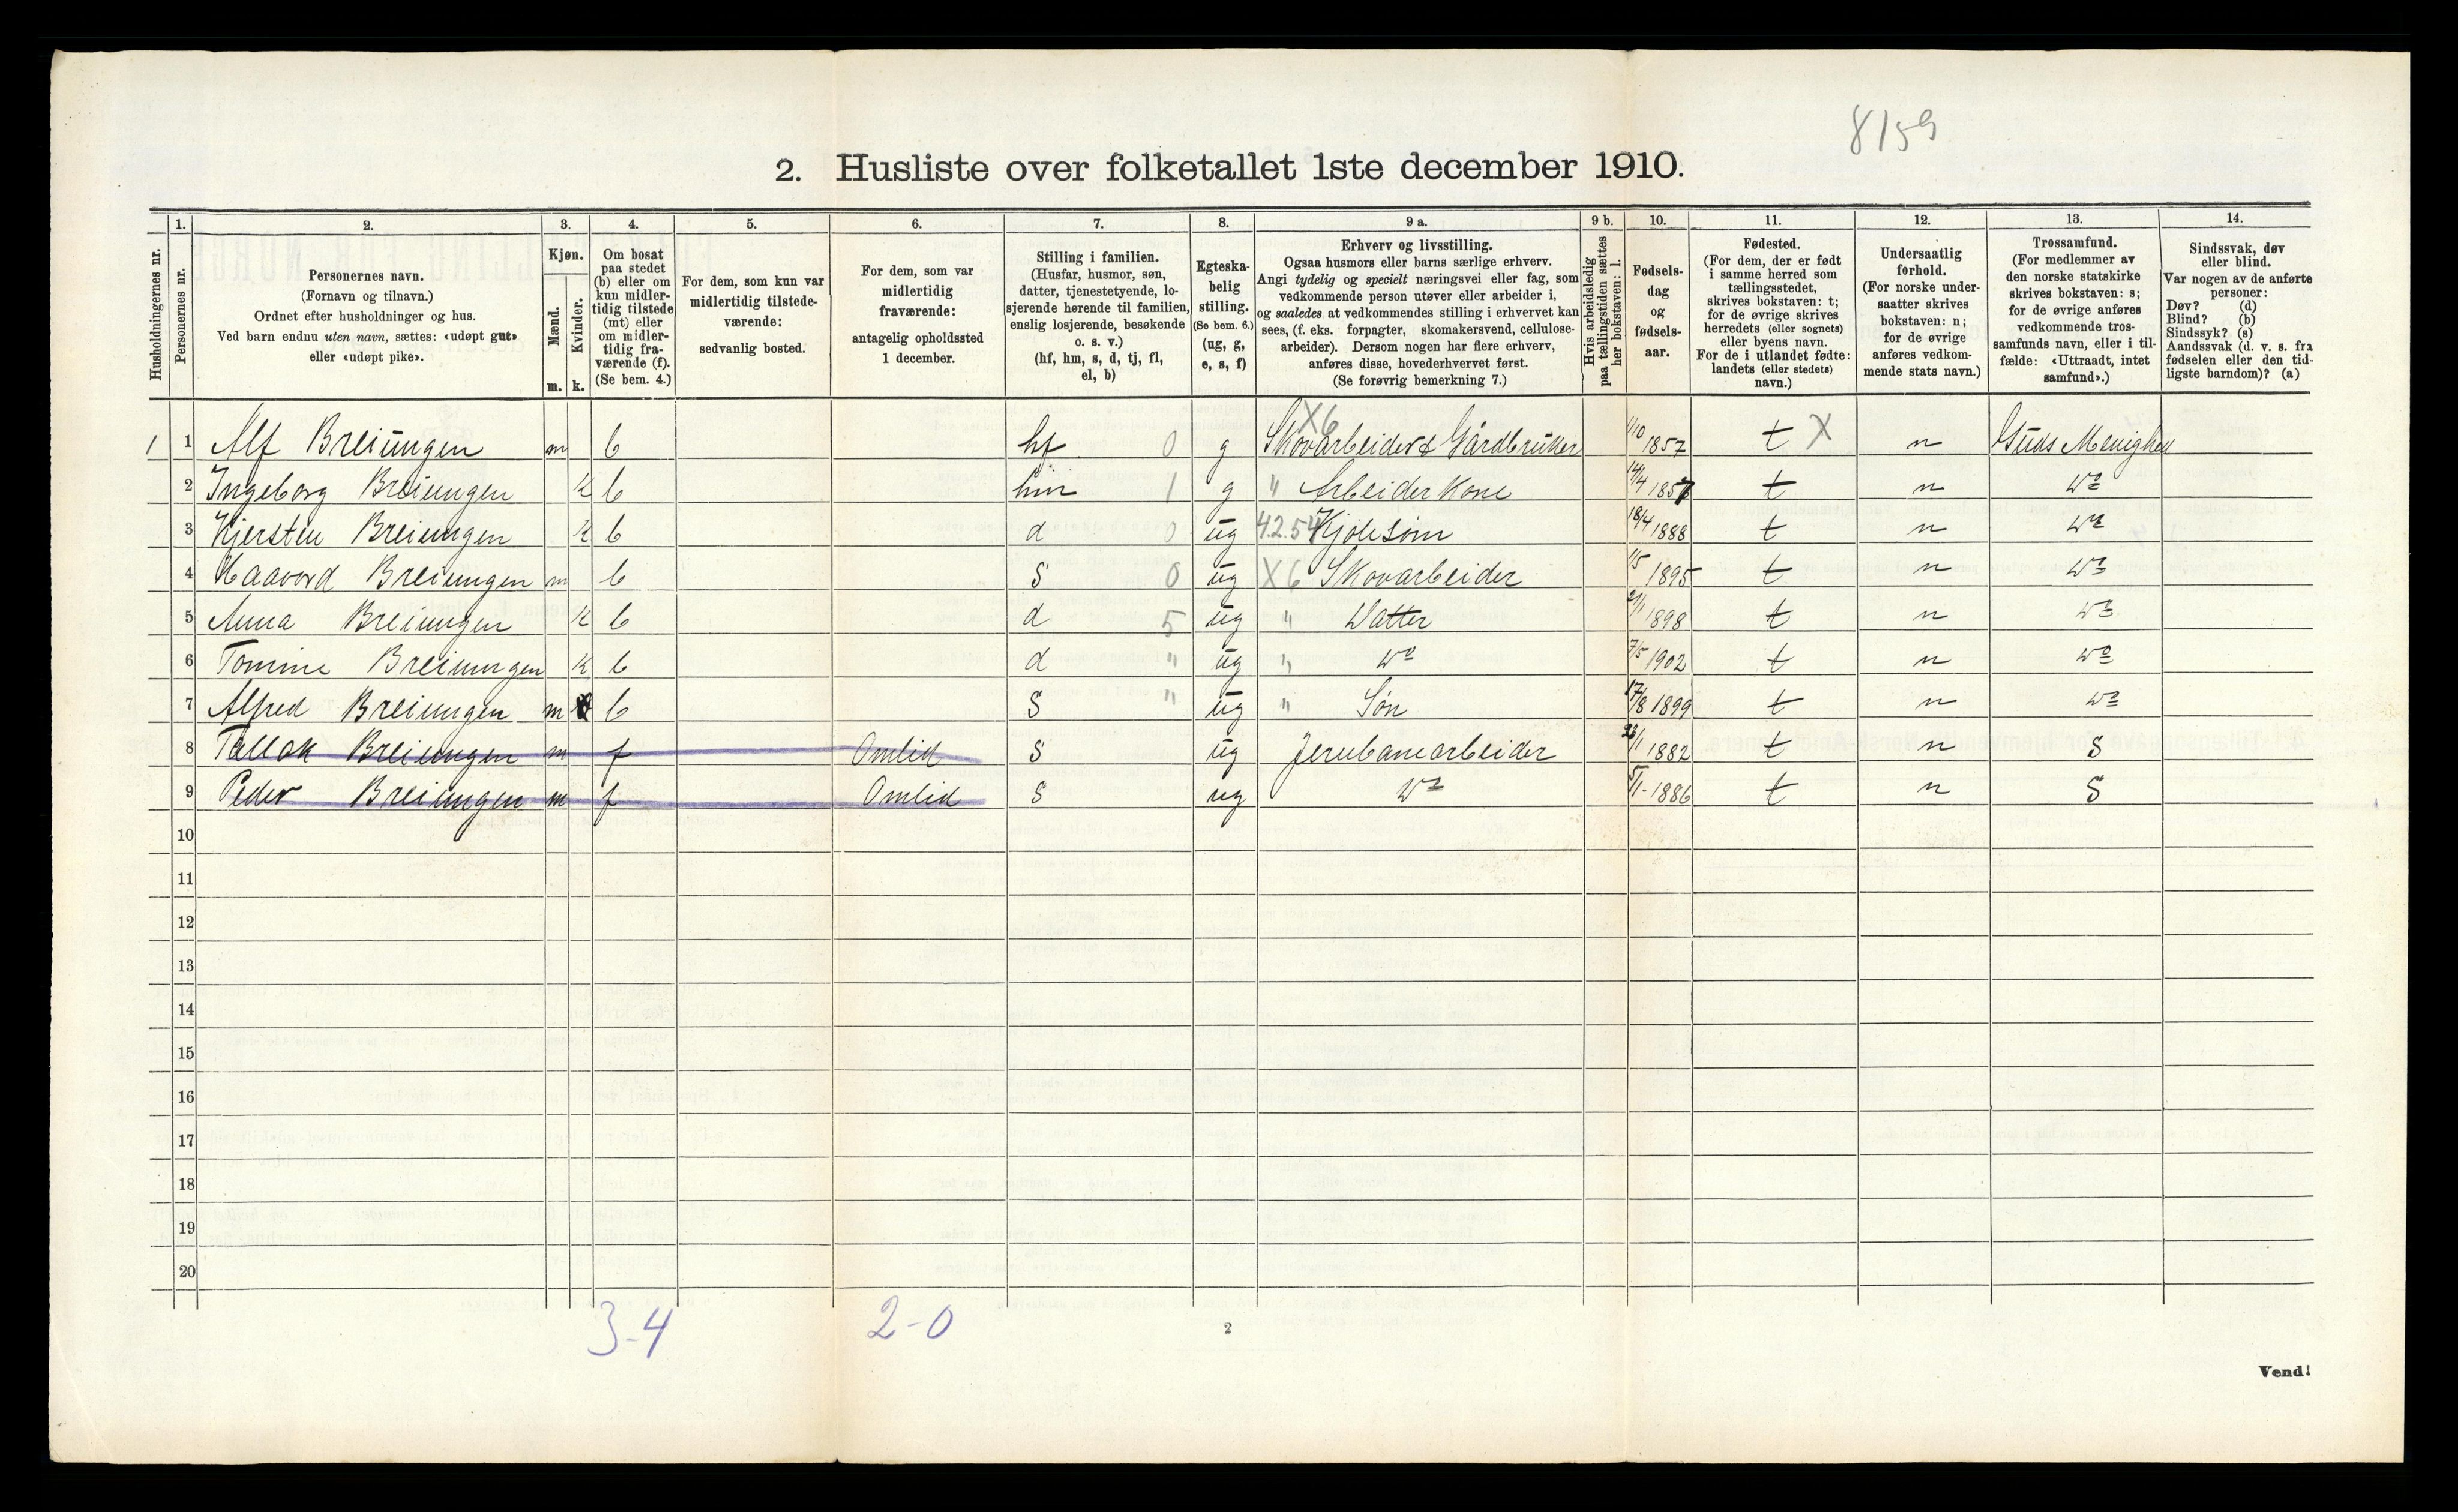 8159
2. Husliste over folketallet 1ste december 1910.
Husholdningernes nr.
1.
Personernes nr.
2.
Personernes navn.
(Fornavn og tilnavn.)
Ordnet efter husholdninger og hus.
Ved barn endnu uten navn, sættes: «udøpt gut»
eller «udøpt pike».
3.
Kjøn.
Mænd.
Kvinder.
m. k.
4.
Om bosat
paa stedet
(b) eller om
kun midler-
tidig tilstede
(mt) eller
om midler-
tidig fra-
værende (f).
(Se bem. 4.)
5.
For dem, som kun var
midlertidig tilstede-
værende:
sedvanlig bosted.
6.
For dem, som var
midlertidig
fraværende:
antagelig opholdssted
1 december.
7.
Stilling i familien.
(Husfar, husmor, søn,
datter, tjenestetyende, lo-
sjerende hørende til familien,
enslig losjerende, besøkende
o. s. v.)
(hf, hm, s, d, tj, fl,
el, b)
8.
Egteska-
belig
stilling.
(Se bem. 6.)
(ug, g,
e, s, f)
9 a.
Erhverv og livsstilling.
Ogsaa husmors eller barns særlige erhverv.
Angi tydelig og specielt næringsvei eller fag, som
vedkommende person utøver eller arbeider i,
og saaledes at vedkommendes stilling i erhvervet kan
sees, (f. eks. forpagter, skomakersvend, cellulose-
arbeider). Dersom nogen har flere erhverv,
anføres disse, hovederhvervet først.
(Se forøvrig bemerkning 7.)
9 b.
Hvis arbeidsledig
paa tællingstiden sættes
her bokstaven: l.
10.
Fødsels-
dag
og
fødsels-
aar.
11.
Fødested.
(For dem, der er født
i samme herred som
tællingsstedet,
skrives bokstaven: t;
for de øvrige skrives
herredets (eller sognets)
eller byens navn.
For de i utlandet fødte:
landets (eller stedets)
navn.)
12.
Undersaatlig
forhold.
(For norske under-
saatter skrives
bokstaven: n;
for de øvrige
anføres vedkom-
mende stats navn.)
13.
Trossamfund.
(For medlemmer av
den norske statskirke
skrives bokstaven: s;
for de øvrige anføres
vedkommende tros-
samfunds navn, eller i til-
fælde: «Uttraadt, intet
samfund».)
14.
Sindssvak, døv
eller blind.
Var nogen av de anførte
personer:
Døv? (d)
Blind? (b)
Sindssyk? (s)
Aandssvak (d. v. s. fra
fødselen eller den tid-
ligste barndom)? (a)
X6
1 1 Alf Breiungen m b hf 0 g Skovarbeider & Gårdbruker 1/10 1857 t X n Guds Menighed
2 Ingeborg Breiungen k b hm 1 g " Arbeider Kone 14/4 1857 t n Do
3 Kjersten Breiungen k b d 0 ug 42.54 Kjolesøm 18/4 1888 t n Do
4 Haavord Breiungen m b s 0 ug X6 Skovarbeider 1/5 1895 t n Do
5 Anna Breiungen k b d 5 ug " Datter 1898 t n Do
6 Tomine Breiungen k b d " ug " Do 7/5 1902 t n Do
7 Alfred Breiungen m b s " ug " Søn 17/8 1899 t n Do
8 Tallak Breiungen m f Omlid s ug Jernbanearbeider 1882 t n S
9 Peder Breiungen m f Omlid s ug Do 5/1-1886 t n S
10
11
12
13
14
15
16
17
18
19
20
3-4 2-0
2
Vend!